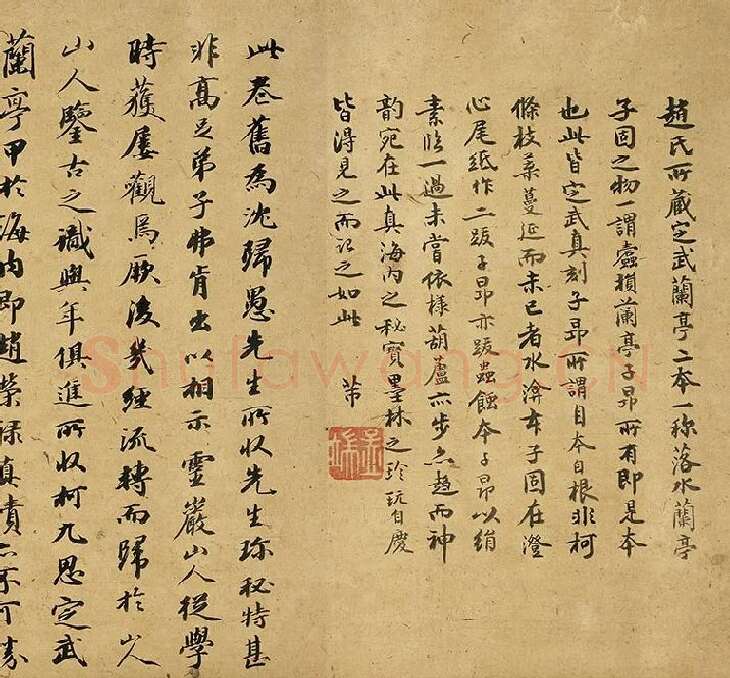 趙氏所藏定武蘭亭二本一称落水蘭亭
子固之物一謂蠹損蘭亭子昂所有即是本
也此皆定武真刻子昂所謂自本自根非柯
條枝葉蔓延而未已者水渰本子固在澄
心尾紙作二跋子昂亦跋蟲蝕本子昂以絹
素臨一過未嘗依樣葫蘆亦步亦趨而神
韵宛在此真海内之秘寶墨林之珍玩自慶
皆得見之而記之如此
芾
此卷舊為沈歸愚先生所收先生珎秘特甚
非高足弟子弗肯出以相示靈巖山人從學
時獲屢觀焉厥後幾經流轉而歸於山人
山人鑒古之識與年俱進所收柯九思定武
蘭亭甲於海内即趙榮禄真賁亦不可多
Shufawang.CN